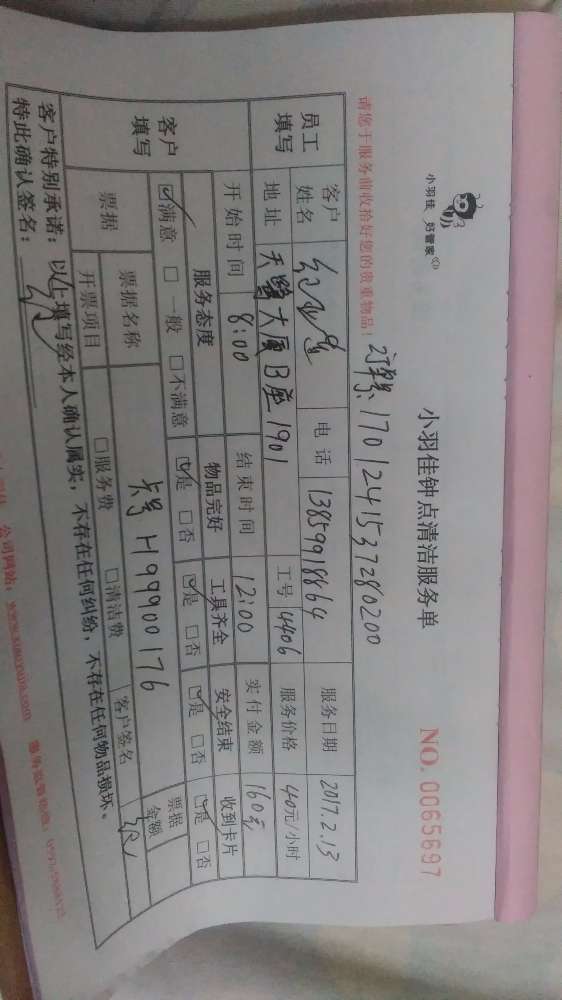 小羽佳 好管家
小羽佳钟点清洁服务单
NO. 0065697
请您于服务前收拾好您的贵重物品!
订单号: 1701241537280200
员工填写 客户姓名 电话 13859918864 服务日期 2017.2.13
地址 天鹭大厦B座1901 工号 4406 服务价格 40元/小时
开始时间 8:00 结束时间 12:00 实付金额 160元
客户填写 服务态度 物品完好 工具齐全 安全结束 收到卡片
☑满意 □一般 □不满意 ☑是 □否 ☑是 □否 ☑是 □否 ☑是 □否
票据 票据名称 卡号 H99900176 票据金额
开票项目 □服务费 □清洁费 客户签名
客户特别承诺:以上填写经本人确认属实,不存在任何纠纷,不存在任何物品损坏、
特此确认签名:
公司网站: www.xiaoyujia.com